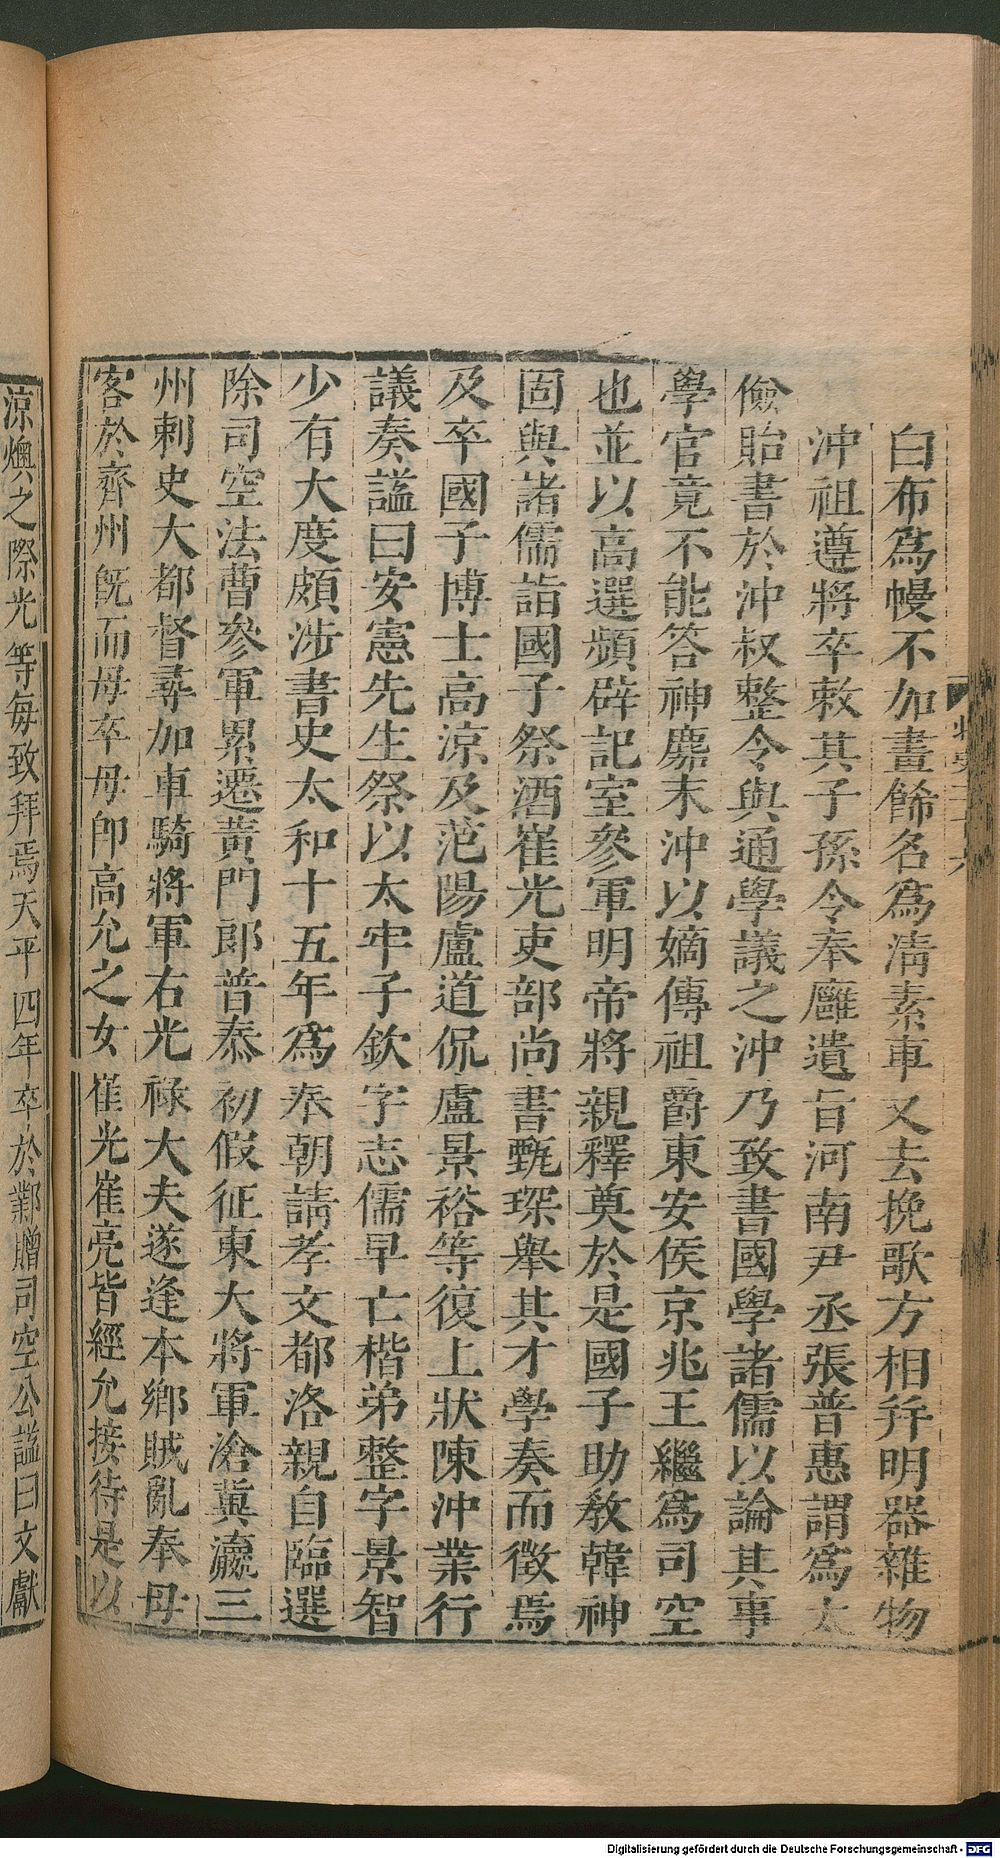 白布爲幔不加畫飾名爲淸素車又去挽歌方相幷明器雜物
沖祖遵將卒敕其子孫令奉廱遺旨河南尹丞張普惠謂爲太
儉貽書於沖叔整令與通學議之沖乃致書國學諸儒以論其事
學官竟不能答神龝末沖以嫡傳祖爵東安侯京兆王繼爲司空
也並以高選頻辟記室參軍明帝將親釋奠於是國子助敎韓神
固與諸儒詣國子祭酒崔光吏部尚書甄琛舉其才學奏而徵焉
及卒國子博士高涼及范陽盧道侃盧景裕等復上狀陳沖業行
議奏諡曰安憲先生祭以太牢子欽字志儒早亡楷弟整字景智
少有大度頗涉書史太和十五年爲奉朝請孝文都洛親自臨選
除司空法曹參軍累遷黃門郎普泰初假征東大將軍滄冀瀛三
州刺史大都督尋加車騎將軍右光祿大夫遂逢本鄉賊亂奉母
客於齊州旣而母卒母卽高允之女崔光崔亮皆經允接待是以
涼燠之際光等每致拜焉天平四年卒於鄴贈司空公諡曰文獻
Digitalisierung gefördert durch die Deutsche Forschungsgemeinschaft - DFG